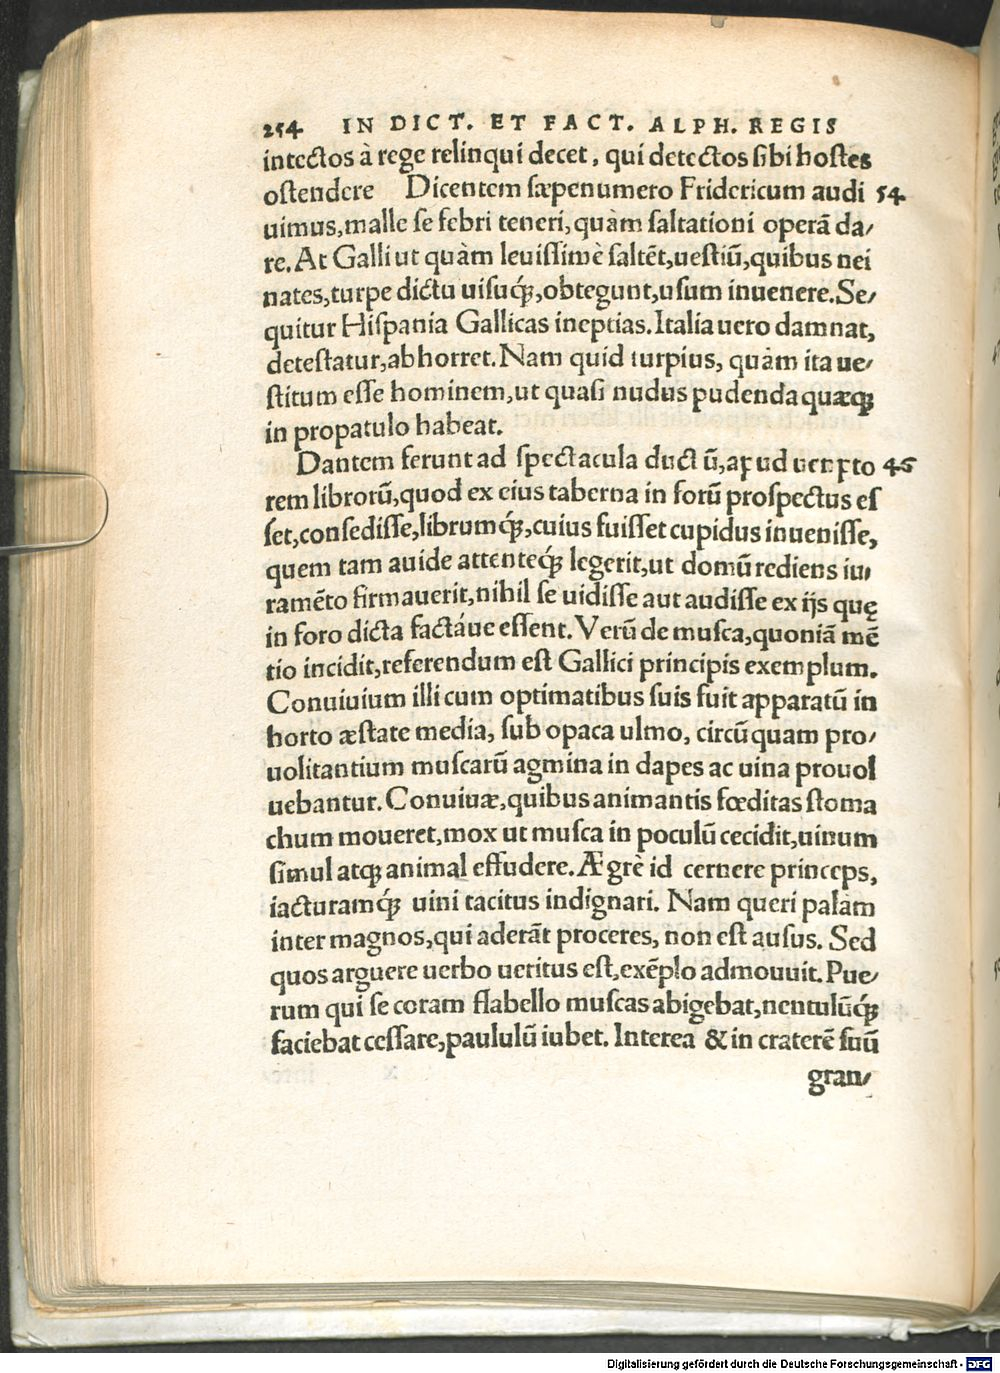 254 IN DICT. ET FACT. ALPH. REGIS
intectos à rege relinqui decet, qui detectos sibi hostes
ostendere Dicentem sæpenumero Fridericum audi 54
uimus, malle se febri teneri, quàm saltationi operā da/
re. At Galli ut quàm leuissimè saltēt, uestiū, quibus nei
nates, turpe dictu uisuq́;, obtegunt, usum inuenere. Se/
quitur Hispania Gallicas ineptias. Italia uero damnat,
detestatur, abhorret. Nam quid turpius, quàm ita ue/
stitum esse hominem, ut quasi nudus pudenda quæq;
in propatulo habeat.
Dantem ferunt ad spectacula ductū, apud uerpto 46
rem librorū, quod ex eius taberna in forū prospectus es
set, consedisse, librumq́;, cuius fuisset cupidus inuenisse,
quem tam auide attenteq́; legerit, ut domū rediens iu/
ramēto firmauerit, nihil se uidisse aut audisse ex ijs quę
in foro dicta factáue essent. Verū de musca, quoniā mē
tio incidit, referendum est Gallici principis exemplum.
Conuiuium illi cum optimatibus suis fuit apparatū in
horto æstate media, sub opaca ulmo, circū quam pro/
uolitantium muscarū agmina in dapes ac uina prouol
uebantur. Conuiuæ, quibus animantis fœditas stoma
chum moueret, mox ut musca in poculū cecidit, uinum
simul atq; animal effudere. Ægrè id cernere princeps,
iacturamq́; uini tacitus indignari. Nam queri palàm
inter magnos, qui aderāt proceres, non est ausus. Sed
quos arguere uerbo ueritus est, exēplo admouuit. Pue/
rum qui se coram flabello muscas abigebat, uentulūq́;
faciebat cessare, paululū iubet. Interea & in craterē suū
gran/
Digitalisierung gefördert durch die Deutsche Forschungsgemeinschaft - DFG